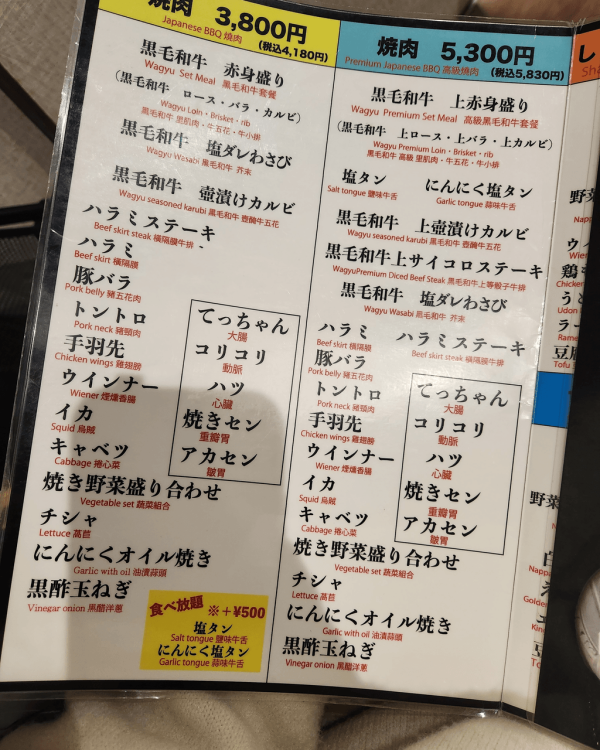 焼肉 3,800円
Japanese BBQ 燒肉 (税込4,180円)
黒毛和牛 赤身盛り
Wagyu Set Meal 黒毛和牛套餐
(黒毛和牛 ロース・バラ・カルビ)
Wagyu Loin・Brisket・rib
黒毛和牛 里肌肉・牛五花・牛小排
黒毛和牛 塩ダレわさび
Wagyu Wasabi 黒毛和牛 芥末
黒毛和牛 壺漬けカルビ
Wagyu seasoned karubi 黒毛和牛 壺醃牛五花
ハラミステーキ
Beef skirt steak 橫隔膜牛排
ハラミ
Beef skirt 橫隔膜
豚バラ
Pork belly 豬五花肉
トントロ
Pork neck 豬頸肉
手羽先
Chicken wings 雞翅膀
ウインナー
Wiener 煙燻香腸
イカ
Squid 烏賊
キャベツ
Cabbage 捲心菜
てっちゃん
大腸
コリコリ
動脈
ハツ
心臓
焼きセン
重瓣胃
アカセン
皺胃
焼き野菜盛り合わせ
Vegetable set 蔬菜組合
チシャ
Lettuce 萵苣
にんにくオイル焼き
Garlic with oil 油漬蒜頭
黒酢玉ねぎ
Vinegar onion 黒醋洋蔥
食べ放題 ※+¥500
塩タン
Salt tongue 鹽味牛舌
にんにく塩タン
Garlic tongue 蒜味牛舌
焼肉 5,300円
Premium Japanese BBQ 高級燒肉 (税込5,830円)
黒毛和牛 上赤身盛り
Wagyu Premium Set Meal 高級黒毛和牛套餐
(黒毛和牛 上ロース・上バラ・上カルビ)
Wagyu Premium Loin・Brisket・rib
黒毛和牛 高級 里肌肉・牛五花・牛小排
塩タン にんにく塩タン
Salt tongue 鹽味牛舌 Garlic tongue 蒜味牛舌
黒毛和牛 上壺漬けカルビ
Wagyu seasoned karubi 黒毛和牛 壺醃牛五花
黒毛和牛上サイコロステーキ
WagyuPremium Diced Beef Steak 黒毛和牛上等骰子牛排
黒毛和牛 塩ダレわさび
Wagyu Wasabi 黒毛和牛 芥末
ハラミ ハラミステーキ
Beef skirt 橫隔膜 Beef skirt steak 橫隔膜牛排
豚バラ
Pork belly 豬五花肉
トントロ
Pork neck 豬頸肉
手羽先
Chicken wings 雞翅膀
ウインナー
Wiener 煙燻香腸
イカ
Squid 烏賊
キャベツ
Cabbage 捲心菜
てっちゃん
大腸
コリコリ
動脈
ハツ
心臓
焼きセン
重瓣胃
アカセン
皺胃
焼き野菜盛り合わせ
Vegetable set 蔬菜組合
チシャ
Lettuce 萵苣
にんにくオイル焼き
Garlic with oil 油漬蒜頭
黒酢玉ねぎ
Vinegar onion 黒醋洋蔥
し
Sha
野菜
Napp
ウイ
Wiene
鶏
Chicken
うど
Udon
ラー
Rame
豆腐
Tofu
野菜
白
Napp
Golde
Kin
豆
To